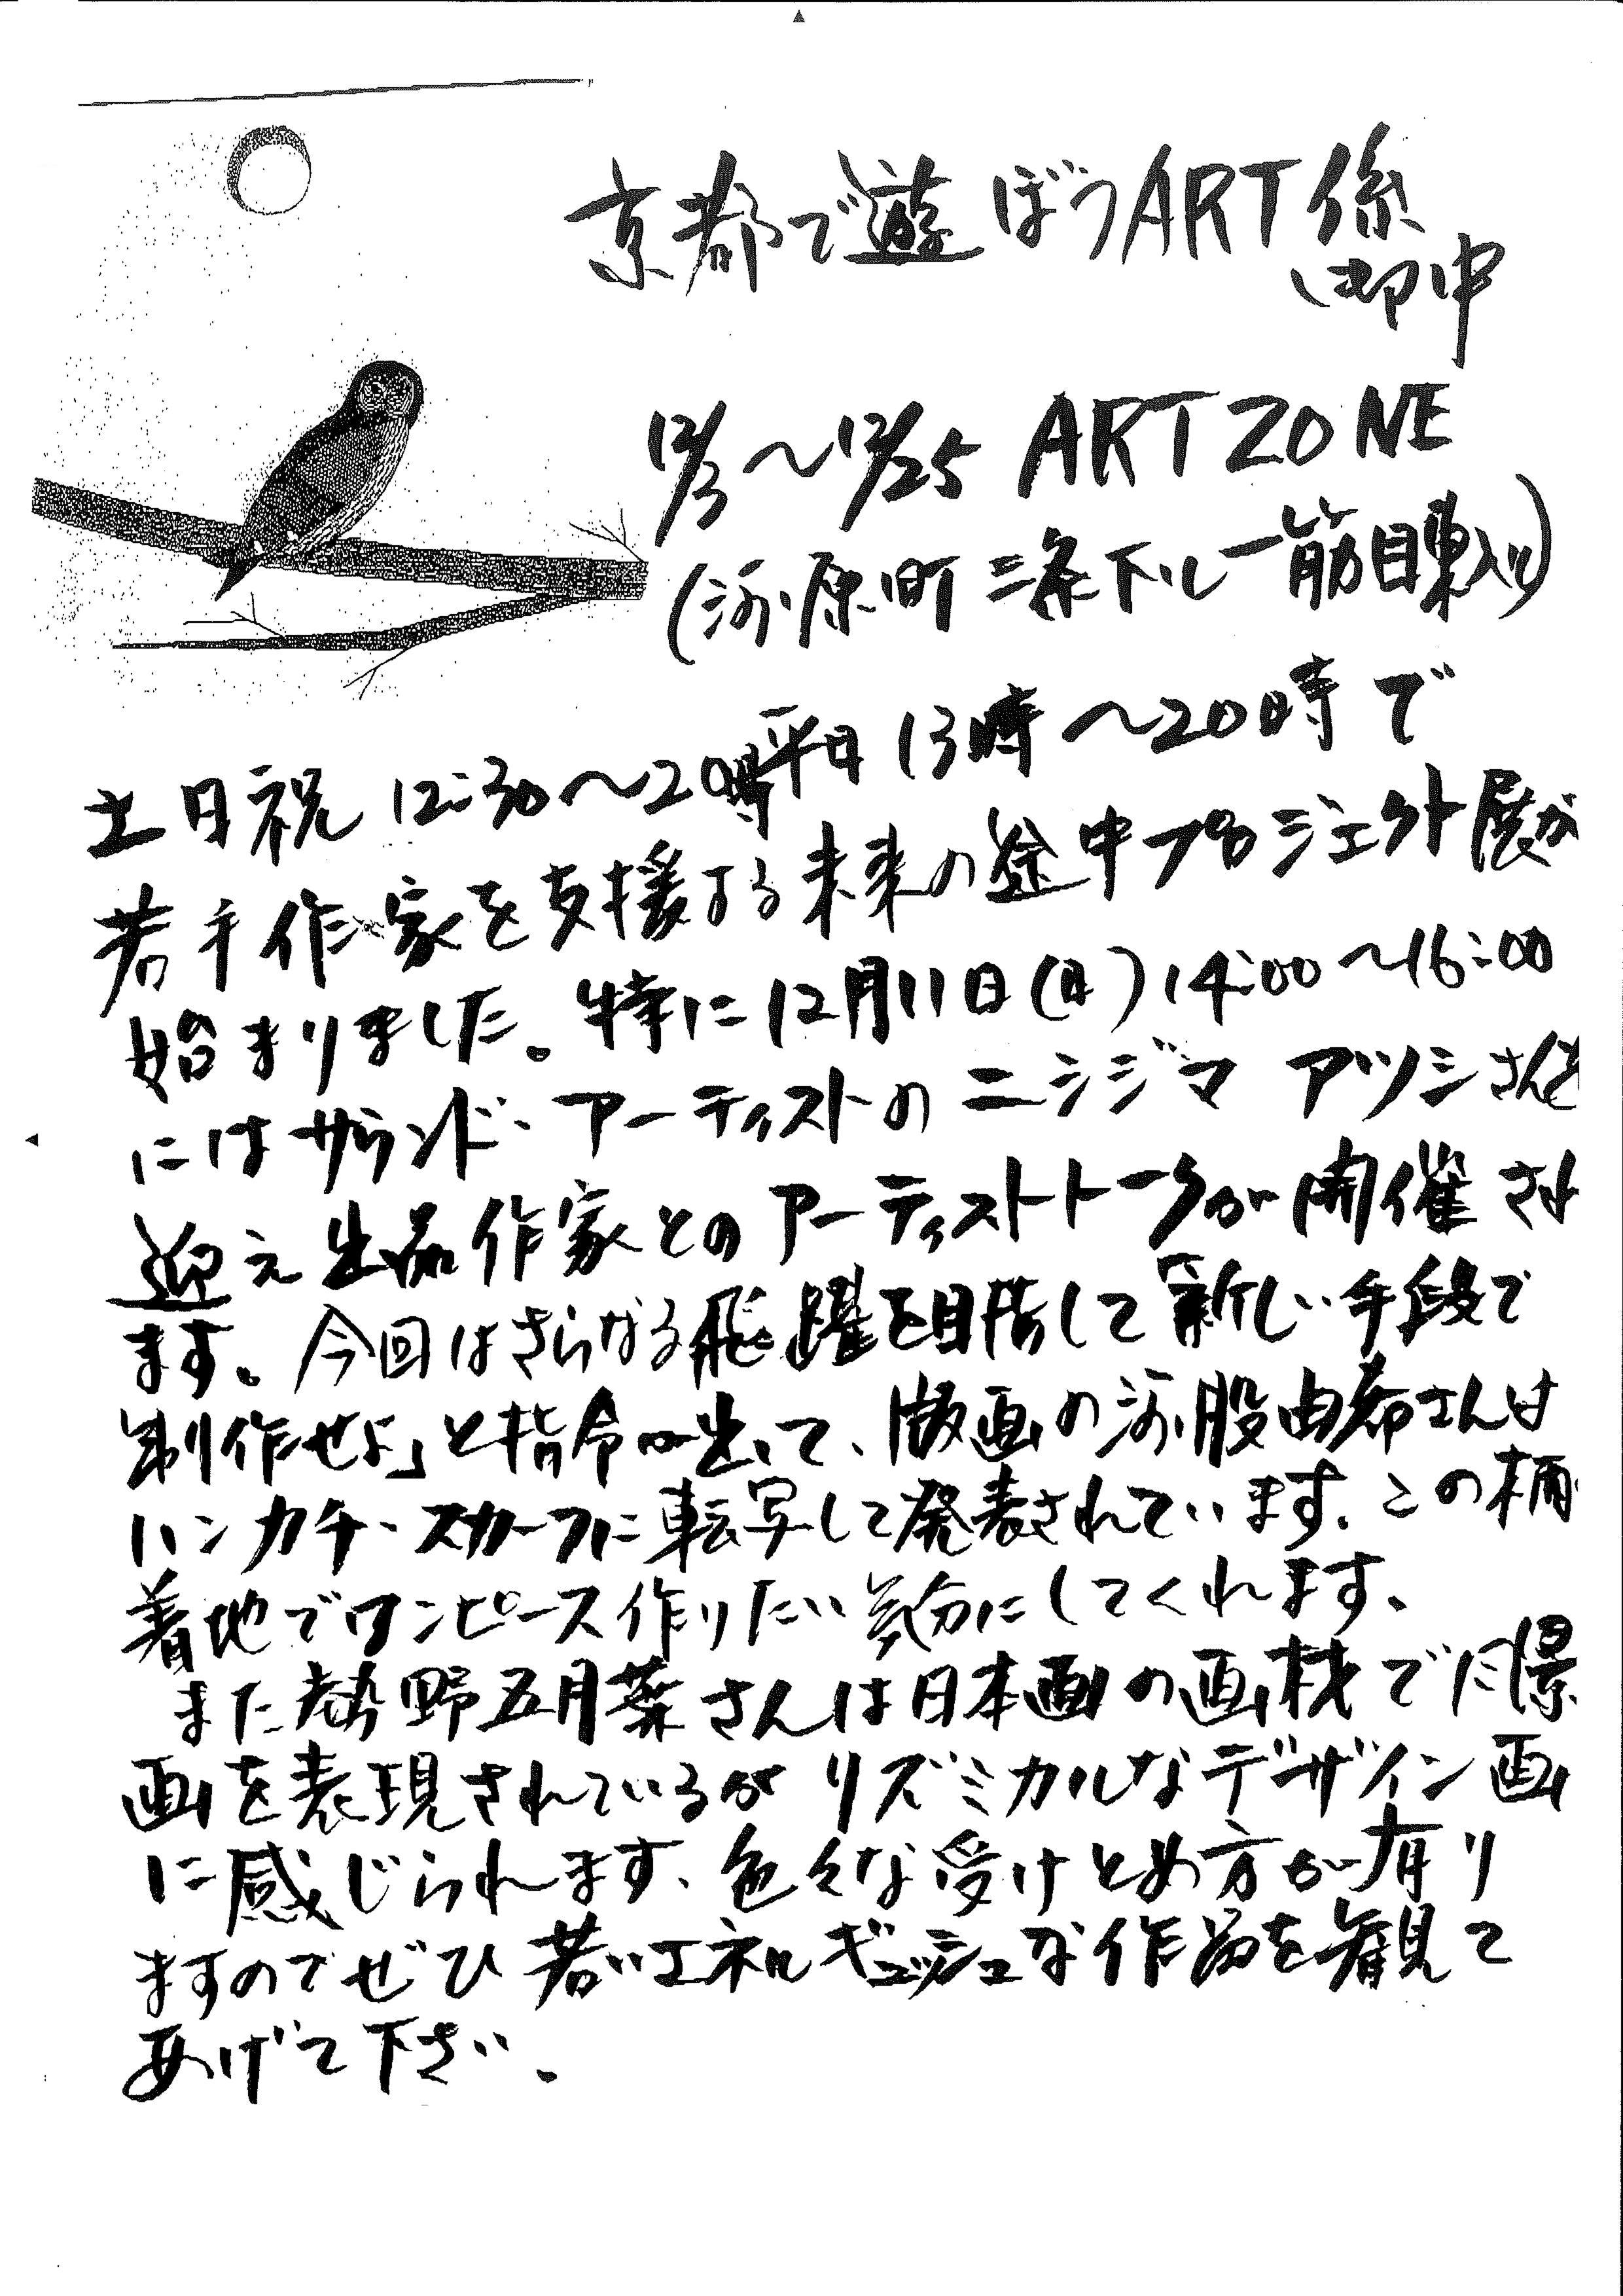 京都で遊ぼうART係
御中
12/3〜12/25 ART ZONE
(河原町三条下ル一筋目東入ル)
平日13時〜20時で
土日祝12:30〜20時
若手作家を支援する未来の途中プロジェクト展が
始まりました。特に12月11日(日)14:00〜16:00
にはサウンド・アーティストのニシジマ アツシさんを
迎え出品作家とのアーティストトークが開催され
ます。今回はさらなる飛躍を目指して「新しい手段で
制作せよ」と指令が出て、版画の河股由希さんは
ハンカチ・スカーフに転写して発表されています、この柄
着地でワンピース作りたい気分にしてくれます、
また 野五月葉さんは日本画の画材で風景
画を表現されているがリズミカルなデザイン画
に感じられます、色々な受けとめ方が有り
ますのでぜひ若いエネルギュッシュな作品を観て
あげて下さい、